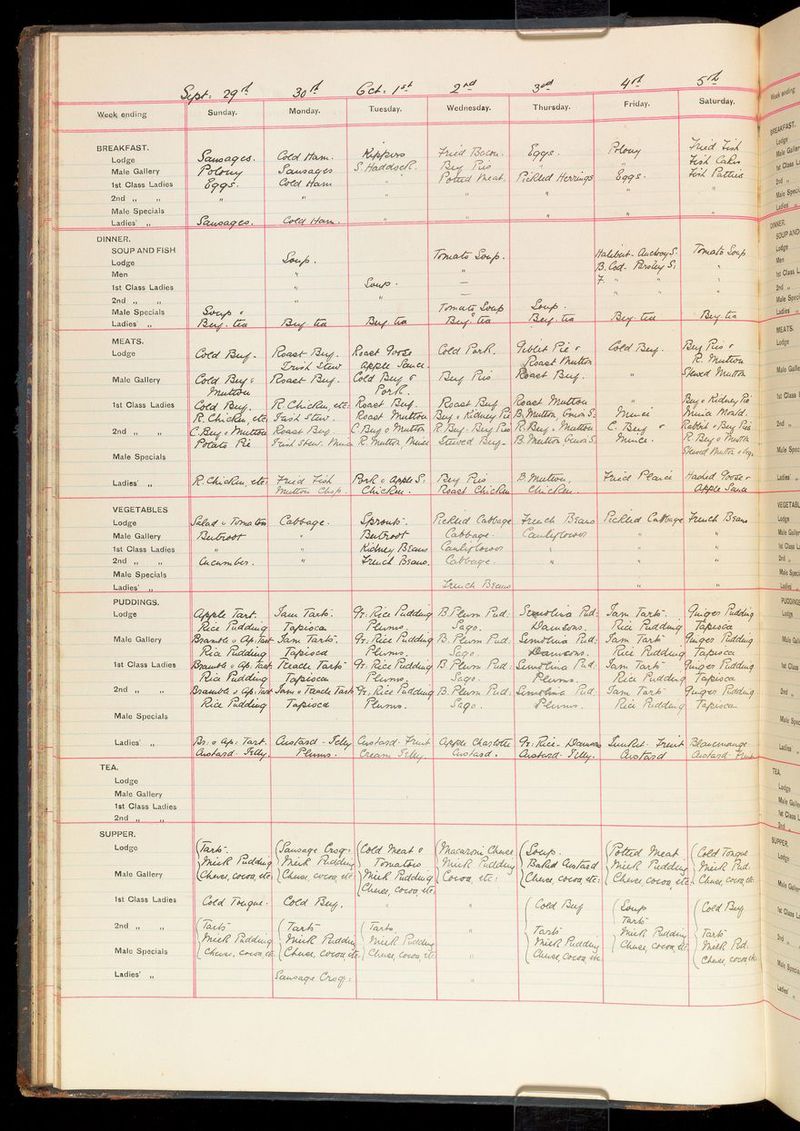 Sept. 29th 30th Oct. 1st 2nd 3rd 4th 5th
Week ending Sunday. Monday. Tuesday. Wednesday. Thursday. Friday. Saturday.
BREAKFAST.
Lodge Sausages. Cold Ham. Kippers Fried Bacon. Eggs. Polony Fried Fish
Male Gallery Polony Sausages S. Haddock. Beef Pies " " Fish Cakes
1st Class Ladies Eggs. Cold Ham " Potted Meat. Pickled Herrings Eggs. Fish Patties
2nd " " " " " " " " "
Male Specials
Ladies' " Sausages. Cold Ham. " " " " "
DINNER.
SOUP AND FISH
Lodge Soup. Tomato Soup. Halibut. Anchovy S. Tomato Soup
Men " " B. Cod. Parsley S. "
1st Class Ladies " Soup. — F. " " "
2nd " " " " " "
Male Specials Soup. Tomato Soup Soup.
Ladies' " Beef. tea Beef tea Beef tea Beef. tea Beef. tea Beef. tea Beef tea
MEATS.
Lodge Cold Beef. Roast Beef. Roast Goose Cold Pork. Giblet Pie & Cold Beef. Beef Pies &
Irish Stew Apple Sauce. Roast Mutton R. Mutton
Male Gallery Cold Beef & Roast Beef. Cold Beef & Beef Pies Roast Beef. " Stewed Mutton
Mutton Pork.
1st Class Ladies Cold Beef. R. Chicken, etc. Roast Beef. Roast Beef Roast Mutton " Beef & Kidney Pie
R. Chicken, etc. Irish Stew. Roast Mutton Beef & Kidney Pie B. Mutton, Mince Mince Mould.
2nd " " C. Beef & Mutton Roast Beef C. Beef & Mutton R. Beef. Beef Pies R. Beef. Mutton C. Beef & Rabbit & Beef Pie
Potato Pie Irish Stew. Mince R. Mutton, Mince Stewed Beef. B. Mutton Mince. R. Beef & Mutton
Male Specials Stewed Mutton
Ladies' " R. Chicken, etc. Fried Fish Pork & Apple S. Beef Pies B. Mutton, Fried Plaice Hashed Goose &
Mutton Chop. Chicken. Roast Chicken Chicken. Apple Sauce
VEGETABLES
Lodge Salad & Tomatoes Cabbage. Sprouts. Pickled Cabbage French Beans Pickled Cabbage French Beans
Male Gallery Beetroot " Beetroot Cabbage. Cauliflower " "
1st Class Ladies " " Kidney Beans Cauliflower " " "
2nd " " Cucumber. " French Beans. Cabbage. " " "
Male Specials
Ladies' " French Beans " "
PUDDINGS.
Lodge Apple Tart. Jam Tarts. Gr. Rice Pudding B. Plum Pud: Semolina Pud: Jam Tarts. Ginger Pudding
Rice Pudding Tapioca Plums. Sago. Damsons. Rice Pudding Tapioca
Male Gallery Bramble & Ap. Tart Jam Tarts. Gr. Rice Pudding B. Plum Pud: Semolina Pud. Jam Tarts Ginger Pudding
Rice Pudding Tapioca Plums. Sago. Damsons. Rice Pudding Tapioca
1st Class Ladies Bramble & Ap. Tart Treacle Tarts Gr. Rice Pudding B. Plum Pud: Semolina Pud. Jam Tarts Ginger Pudding
Rice Pudding Tapioca Plums. Sago. Plums. Rice Pudding Tapioca
2nd " " Bramble & Ap. Tart Jam & Treacle Tarts Gr. Rice Pudding B. Plum Pud: Semolina Pud. Jam Tarts Ginger Pudding
Rice Pudding Tapioca Plums. Sago. Plums. Rice Pudding Tapioca
Male Specials
Ladies' " Br. & Ap. Tart. Custard. Jelly Custard. Fruit Apple Charlotte Gr. Rice. Damsons Junket. Fruit Blancmange
Custard. Jelly. Plums. Cream Jelly. Custard. Custard. Jelly. Custard Custard. Fruit
TEA.
Lodge
Male Gallery
1st Class Ladies
2nd " "
SUPPER.
Lodge Tarts. Sausage Croq: Cold Meat & Macaroni Cheese Soup. Potted Meat. Cold Tongue
Milk Pudding Milk Pudding Tomatoes Milk Pudding Baked Custard Milk Pudding Milk Pud.
Male Gallery Cheese, cocoa, etc. Cheese, cocoa, etc. Milk Pudding Cocoa, etc: Cheese, cocoa, etc: Cheese, cocoa, etc. Cheese, cocoa, etc.
Cheese, cocoa, etc.
1st Class Ladies Cold Tongue. Cold Beef. " " Cold Beef Soup Cold Beef
Tarts
2nd " " Tarts Tarts. Tarts. " Tarts. Milk Pudding Tarts
Milk Pudding Milk Pudding Milk Pudding Milk Pudding Cheese, cocoa, etc. Milk Pud.
Male Specials Cheese, cocoa, etc. Cheese, cocoa, etc. Cheese, cocoa, etc. " Cheese, cocoa, etc. Cheese, cocoa, etc.
Ladies' " Sausage Croq: "